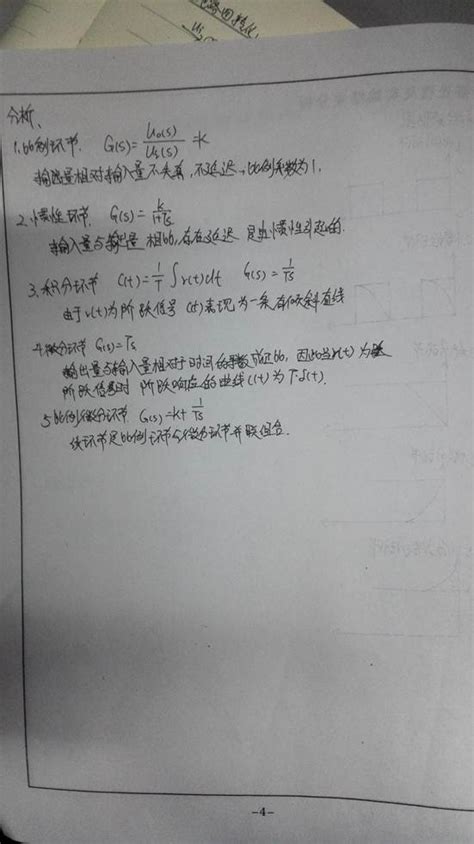 电路图
Ui
分析、
1.比例环节. G(s)=Uo(s)/Ui(s)=K
输出量相对输入量不失真,不延迟,比例系数为1.
2.惯性环节. G(s)=K/1+Ts
输入量与输出量相比,存在延迟 是由惯性引起的.
3.积分环节 C(t)=1/T∫r(t)dt G(s)=1/Ts
由于r(t)为阶跃信号 C(t)表现为一条有倾斜直线
4.微分环节 G(s)=Ts
输出量与输入量相对于时间的导数成正比,因此当r(t)为
阶跃信号时 阶跃响应的曲线C(t)为T·δ(t).
5.比例微分环节 G(s)=K+1/Ts
该环节是比例环节与微分环节并联组合.
-4-